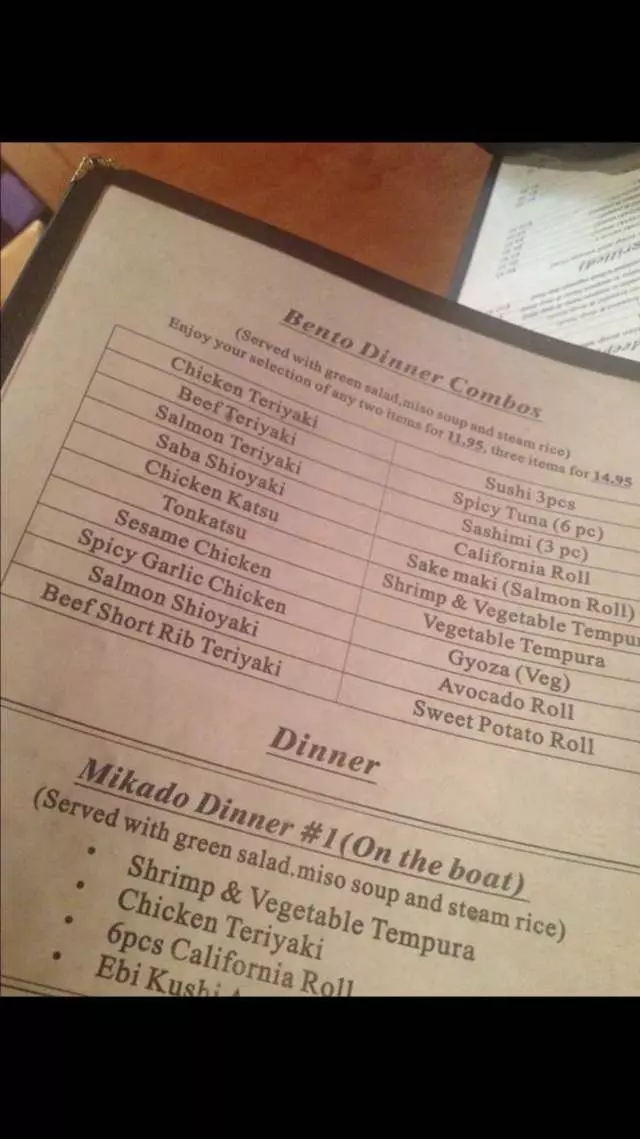 Bento Dinner Combos
(Served with green salad,miso soup and steam rice)
Enjoy your selection of any two items for 11.95, three items for 14.95
Chicken Teriyaki
Sushi 3pcs
Beef Teriyaki
Spicy Tuna (6 pc)
Salmon Teriyaki
Sashimi (3 pc)
Saba Shioyaki
California Roll
Chicken Katsu
Sake maki (Salmon Roll)
Tonkatsu
Shrimp & Vegetable
Sesame Chicken
Vegetable Tempura
Spicy Garlic Chicken
Gyoza (Veg)
Salmon Shioyaki
Avocado Roll
Beef Short Rib Teriyaki
Sweet Potato Roll
Dinner
Mikado Dinner #1(On the boat)
(Served with green salad.miso soup and steam rice)
• Shrimp & Vegetable Tempura
• Chicken Teriyaki
• 6pcs California Roll
• Ebi Kushi